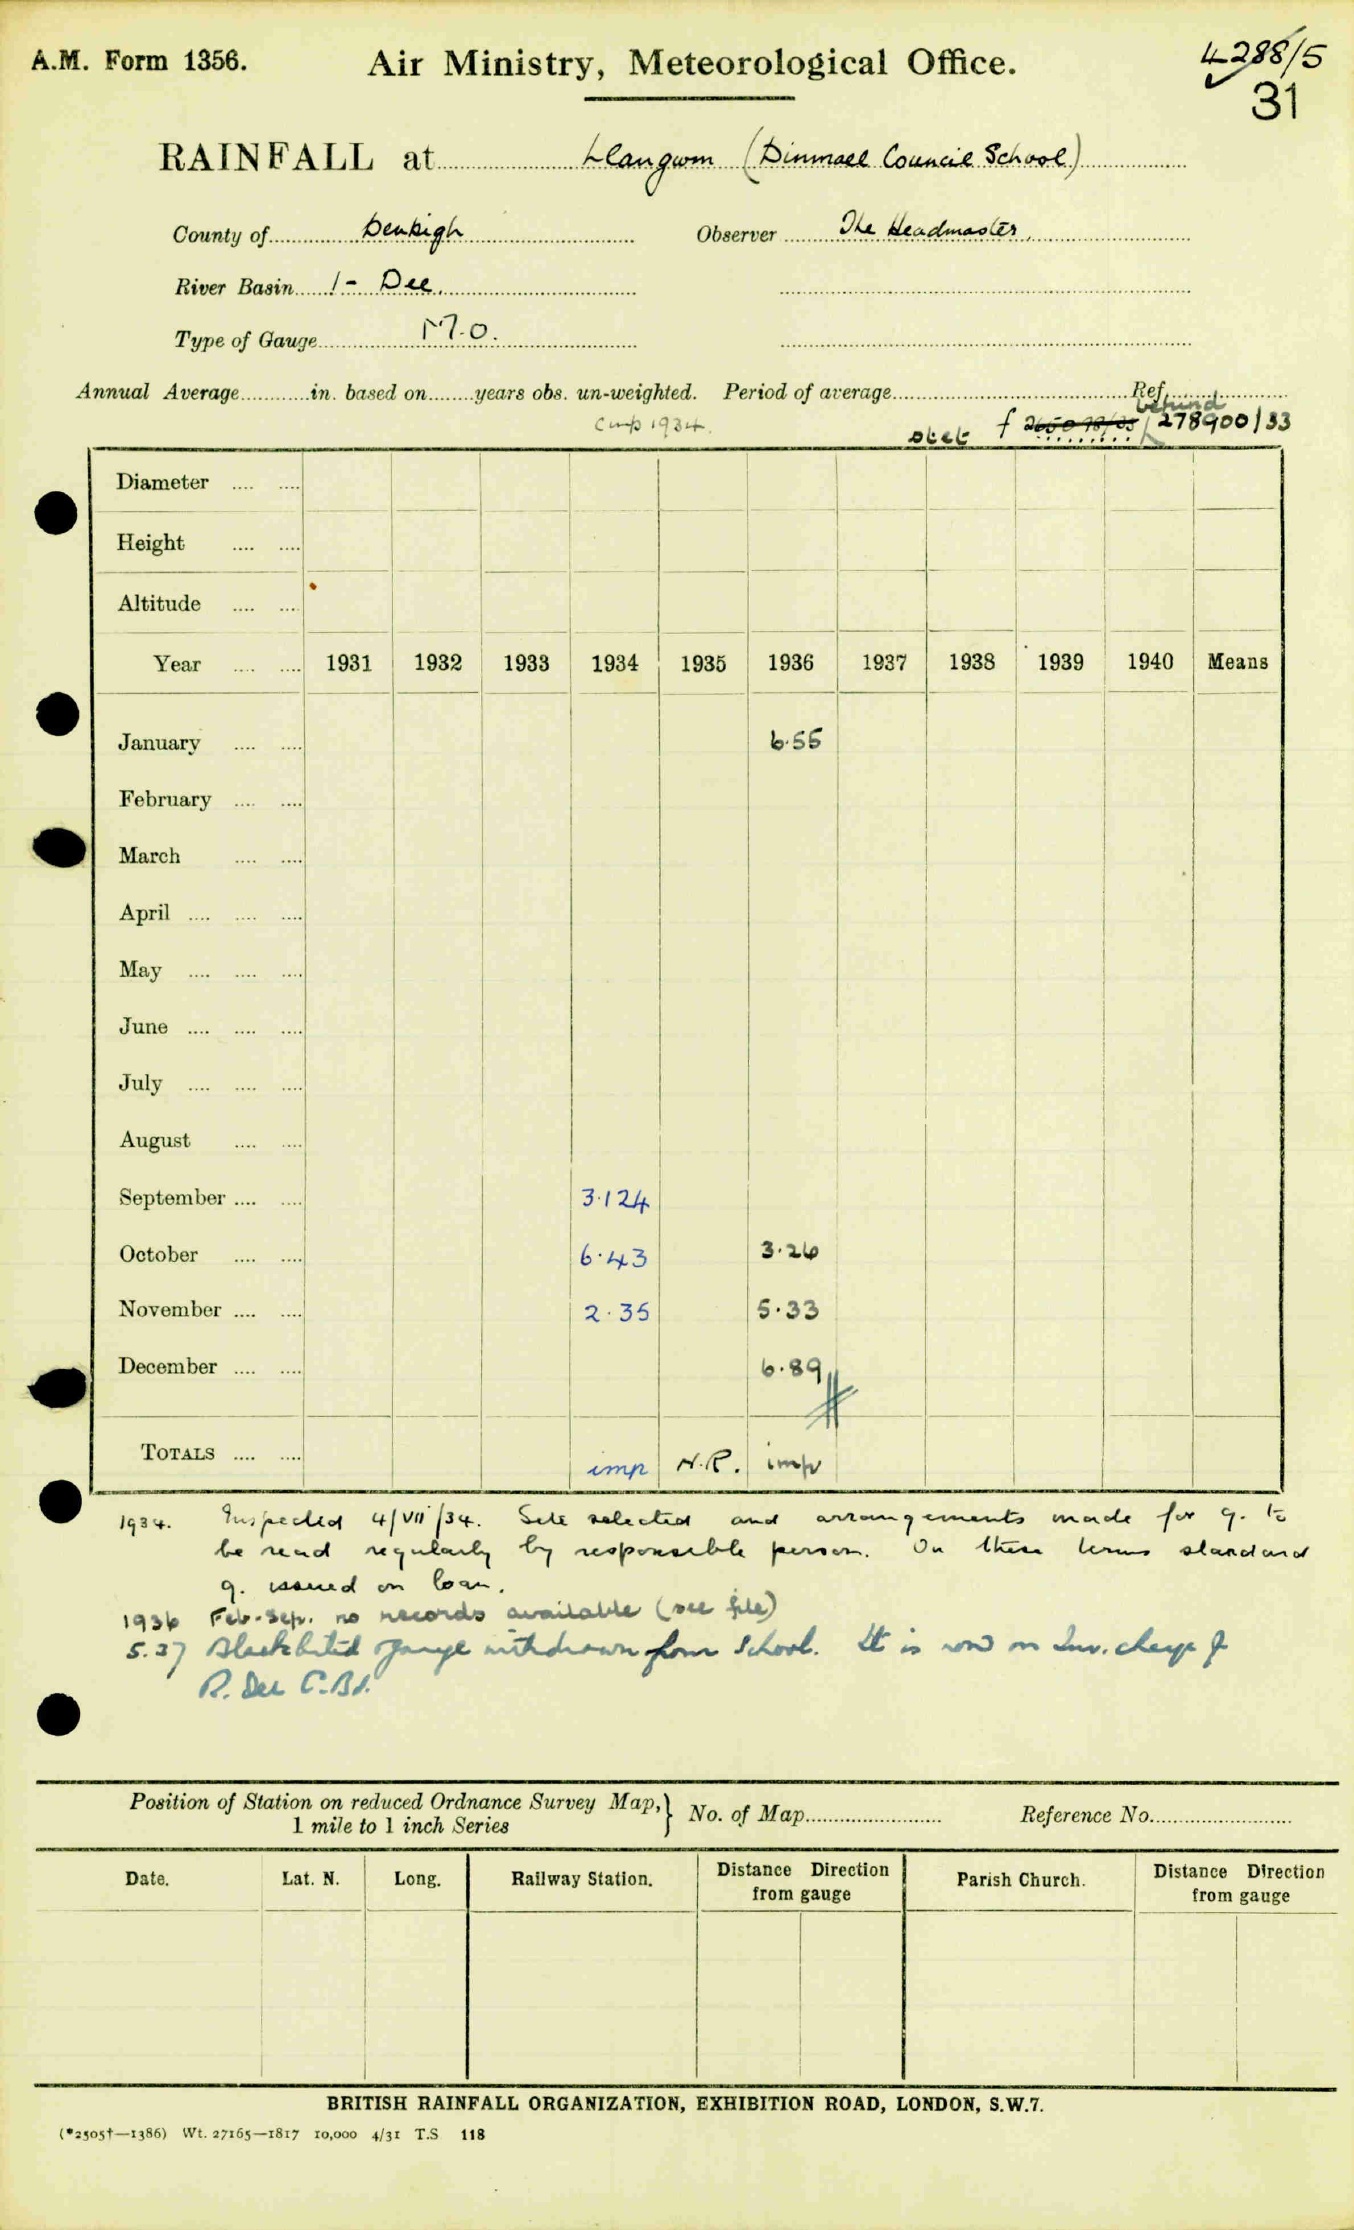 A.M. Form 1356. Air Ministry, Meteorological Office. 4288/5
31
RAINFALL at Llangwm (Dinmael Council School)
County of Denbigh Observer The Headmaster.
River Basin 1 - Dee.
Type of Gauge M.O.
Annual Average in. based on years obs. un-weighted. Period of average Ref.
behind
Cmp 1934. stet f 278900/33
Diameter .... ....
Height .... ....
Altitude .... ....
Year .... .... 1931 1932 1933 1934 1935 1936 1937 1938 1939 1940 Means
January .... .... 6.55
February .... ....
March .... ....
April .... .... ....
May .... .... ....
June .... .... ....
July .... .... ....
August .... ....
September .... .... 3.124
October .... .... 6.43 3.26
November .... .... 2.35 5.33
December .... .... 6.89
TOTALS .... .... imp N.R. imp
1934. Inspected 4/VII/34. Site selected and arrangements made for g. to
be read regularly by responsible person. On these terms standard
g. issued on loan.
1936 Feb-Sep. no records available (see file)
5.37 gauge withdrawn from School. It is now on Inv. charge of
R. Dee C.Bd.
Position of Station on reduced Ordnance Survey Map, } No. of Map Reference No.
1 mile to 1 inch Series
Date. Lat. N. Long. Railway Station. Distance Direction from gauge Parish Church. Distance Direction from gauge
BRITISH RAINFALL ORGANIZATION, EXHIBITION ROAD, LONDON, S.W.7.
(*2505†—1386) Wt. 27165—1817 10,000 4/31 T.S 118